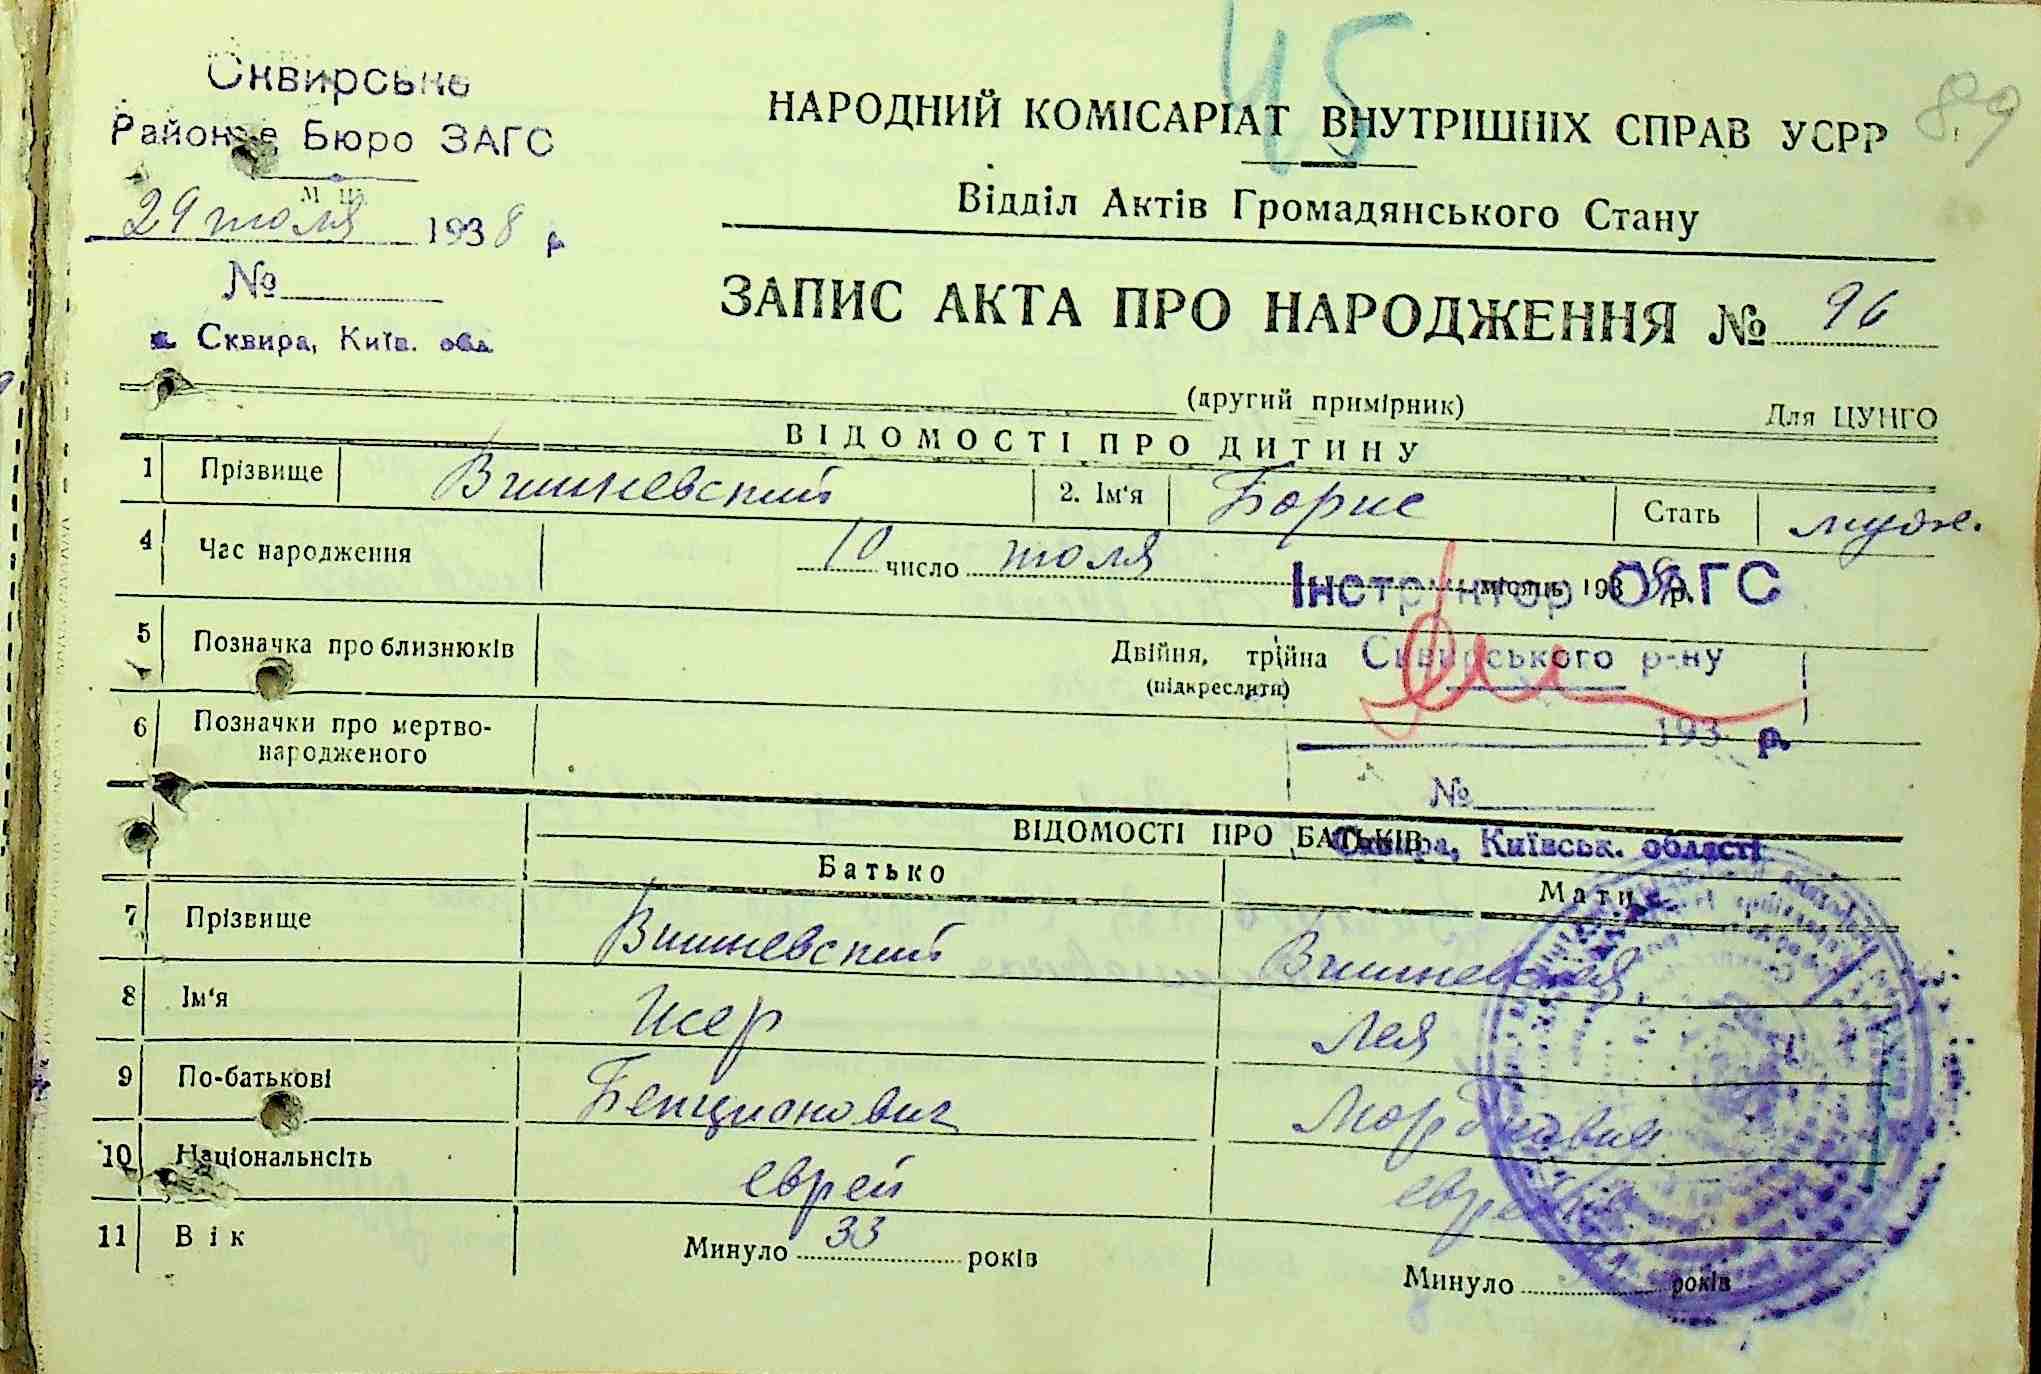 45
89
Сквирське
Районне Бюро ЗАГС
М. П.
29 июля 1938 р
№
м. Сквира, Київ. обл.
НАРОДНИЙ КОМІСАРІАТ ВНУТРІШНІХ СПРАВ УСРР
Відділ Актів Громадянського Стану
ЗАПИС АКТА ПРО НАРОДЖЕННЯ № 96
(другий примірник)
Для ЦУНГО
ВІДОМОСТІ ПРО ДИТИНУ
1 Прізвище Вишневский 2. Ім'я Борис Стать муж.
4 Час народження 10 число июля місяць 193 р.
Інструктор ОАГС
5 Позначка про близнюків Двійня, трійна
(підкреслити)
Сквирського р-ну
193 р.
№
Сквира, Київськ. області
6 Позначки про мертво-
народженого
ВІДОМОСТІ ПРО БАТЬКІВ
Батько Мати
7 Прізвище Вишневский Вишневская
8 Ім'я Исер Лея
9 По-батькові Бенционович Мордковна
10 Національнсіть еврей еврейка
11 Вік Минуло 33 років Минуло років